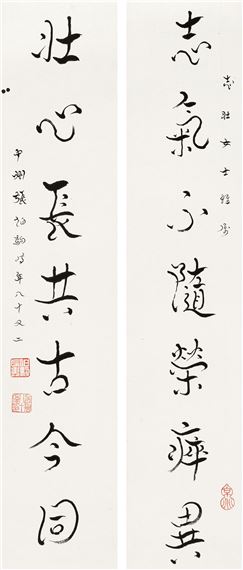 志壯女士雅屬
志氣不隨榮瘁異
壯心長共古今同
中州張伯駒時年八十又二